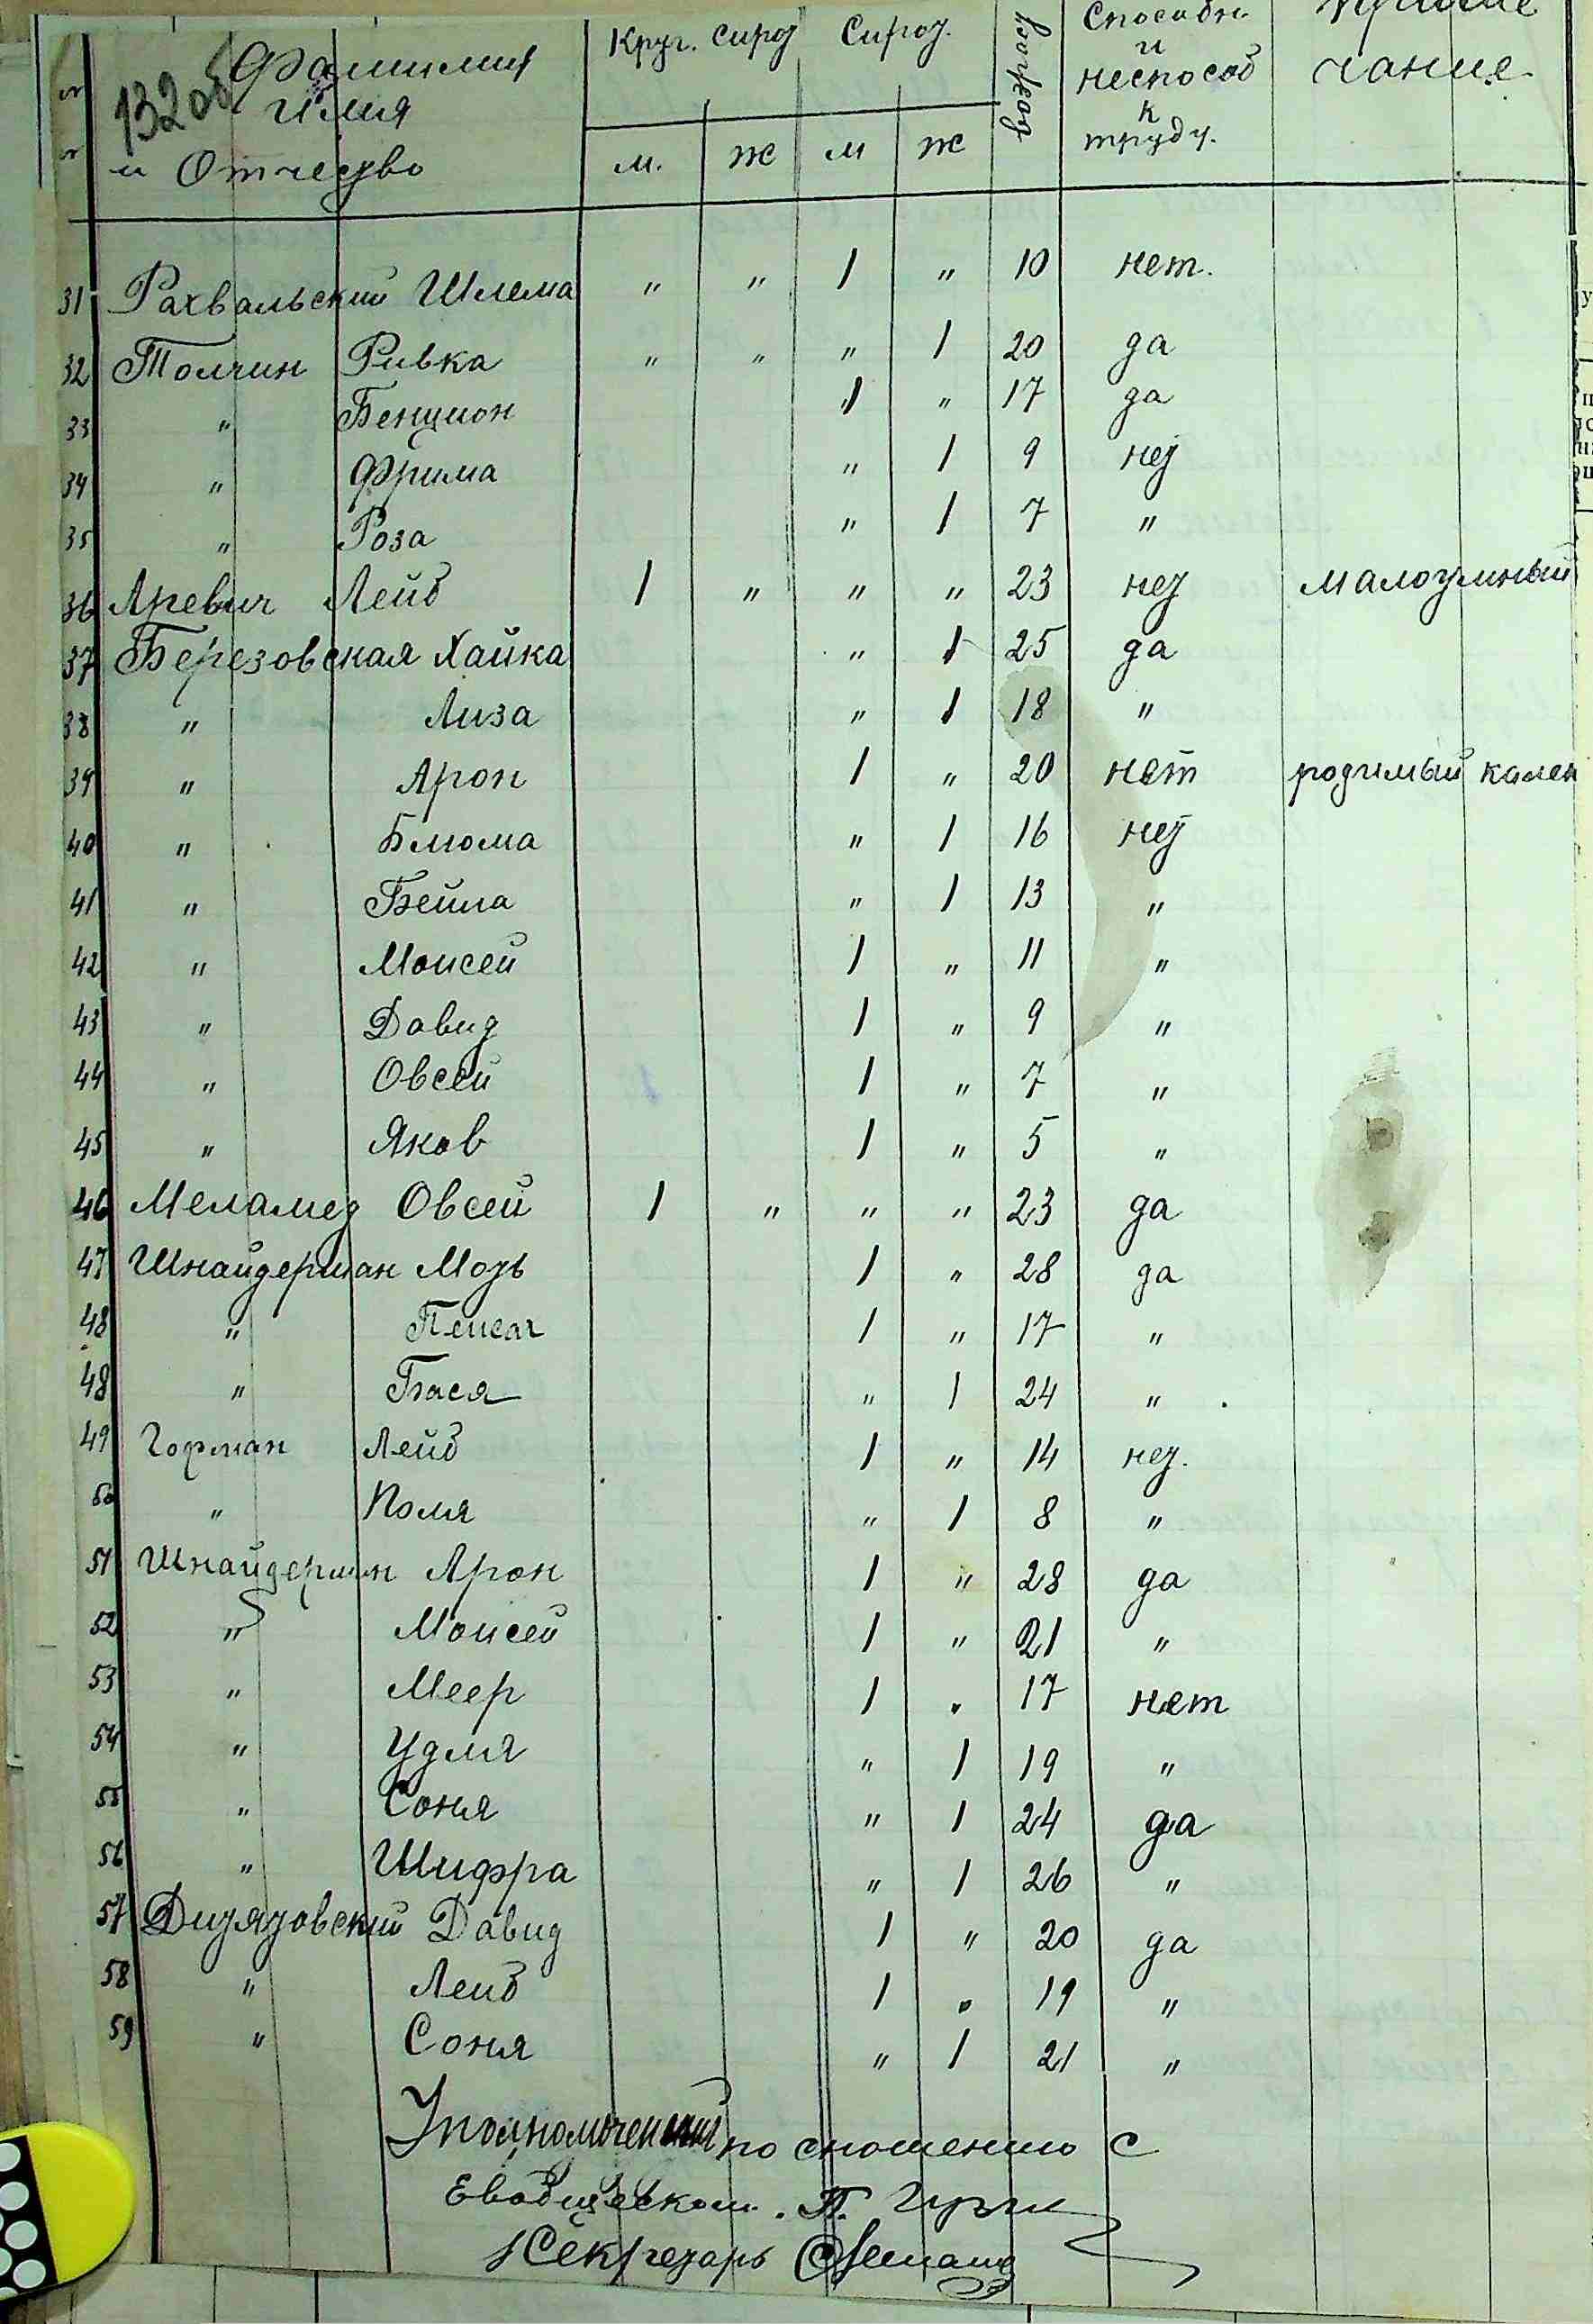 Круг. сирот Сирот. возраст Способн. Приме
132об Фамилия и неспособ чание
Имя к
и Отчество м. ж м ж труду.
31 Рахвальский Шлема " " 1 " 10 нет.
32 Толчин Ривка " " " 1 20 да
33 " Бенцион 1 " 17 да
34 " Фрима " 1 9 нет
35 " Роза " 1 7 "
36 Аревич Лейб 1 " " " 23 нет малоумный
37 Березовская Хайка " 1 25 да
38 " Лиза " 1 18 "
39 " Арон 1 " 20 нет родимый кален
40 " Блюма " 1 16 нет
41 " Бейла " 1 13 "
42 " Моисей 1 " 11 "
43 " Давид 1 " 9 "
44 " Овсей 1 " 7 "
45 " Яков 1 " 5 "
46 Меламед Овсей 1 " " " 23 да
47 Шнайдерман Моть 1 " 28 да
48 " Пейсач 1 " 17 "
48 " Бася " 1 24 "
49 Гофман Лейб 1 " 14 нет.
50 " Поля " 1 8 "
51 Шнайдерман Арон 1 " 28 да
52 " Моисей 1 " 21 "
53 " Меер 1 " 17 нет
54 " Удля " 1 19 "
55 " Соня " 1 24 да
56 " Шифра " 1 26 "
57 Дитятовский Давид 1 " 20 да
58 " Лейб 1 " 19 "
59 " Соня " 1 21 "
Уполномоченный по сношению с
Евобщеском. П.
Секретарь